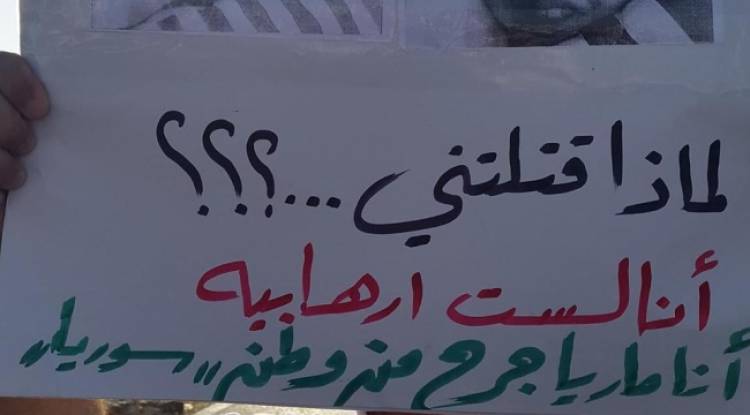 لماذا قتلتني ...؟؟؟
أنا لست ارهابيه
أنا ماريا جرح من وطن ,,سوريا,,